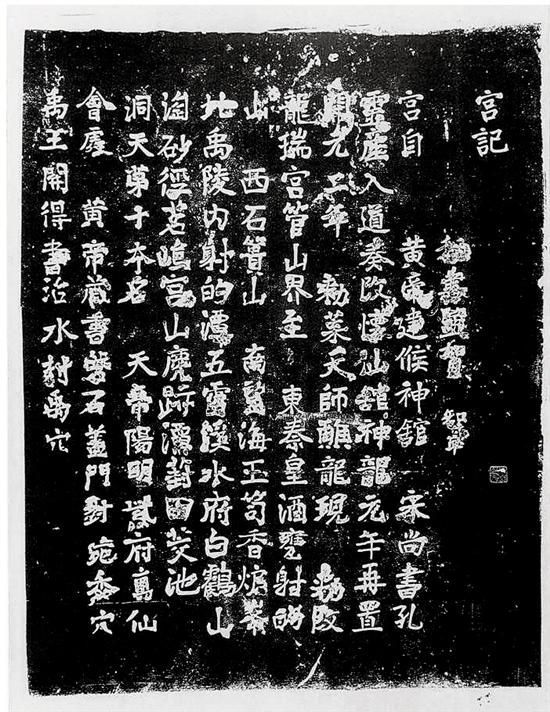 宮記
秘書監賀 知章
宮自 黃帝建候神館 宋尚書孔
靈產入道奏改懷仙館神龍元年再置
開元二年 勅葉天師醮龍現 勅改
龍瑞宮管山界至 東秦皇酒甕射的
山 西石簣山 南望海玉笥香爐峯
北禹陵內射的潭五雲溪水府白鶴山
淘砂徑茗塢宮山鹿跡潭葑田茭池
洞天第十本名 天帝陽明紫府真仙
會處 黃帝藏書磐石蓋門封宛委穴
禹王開得書治水封禹穴